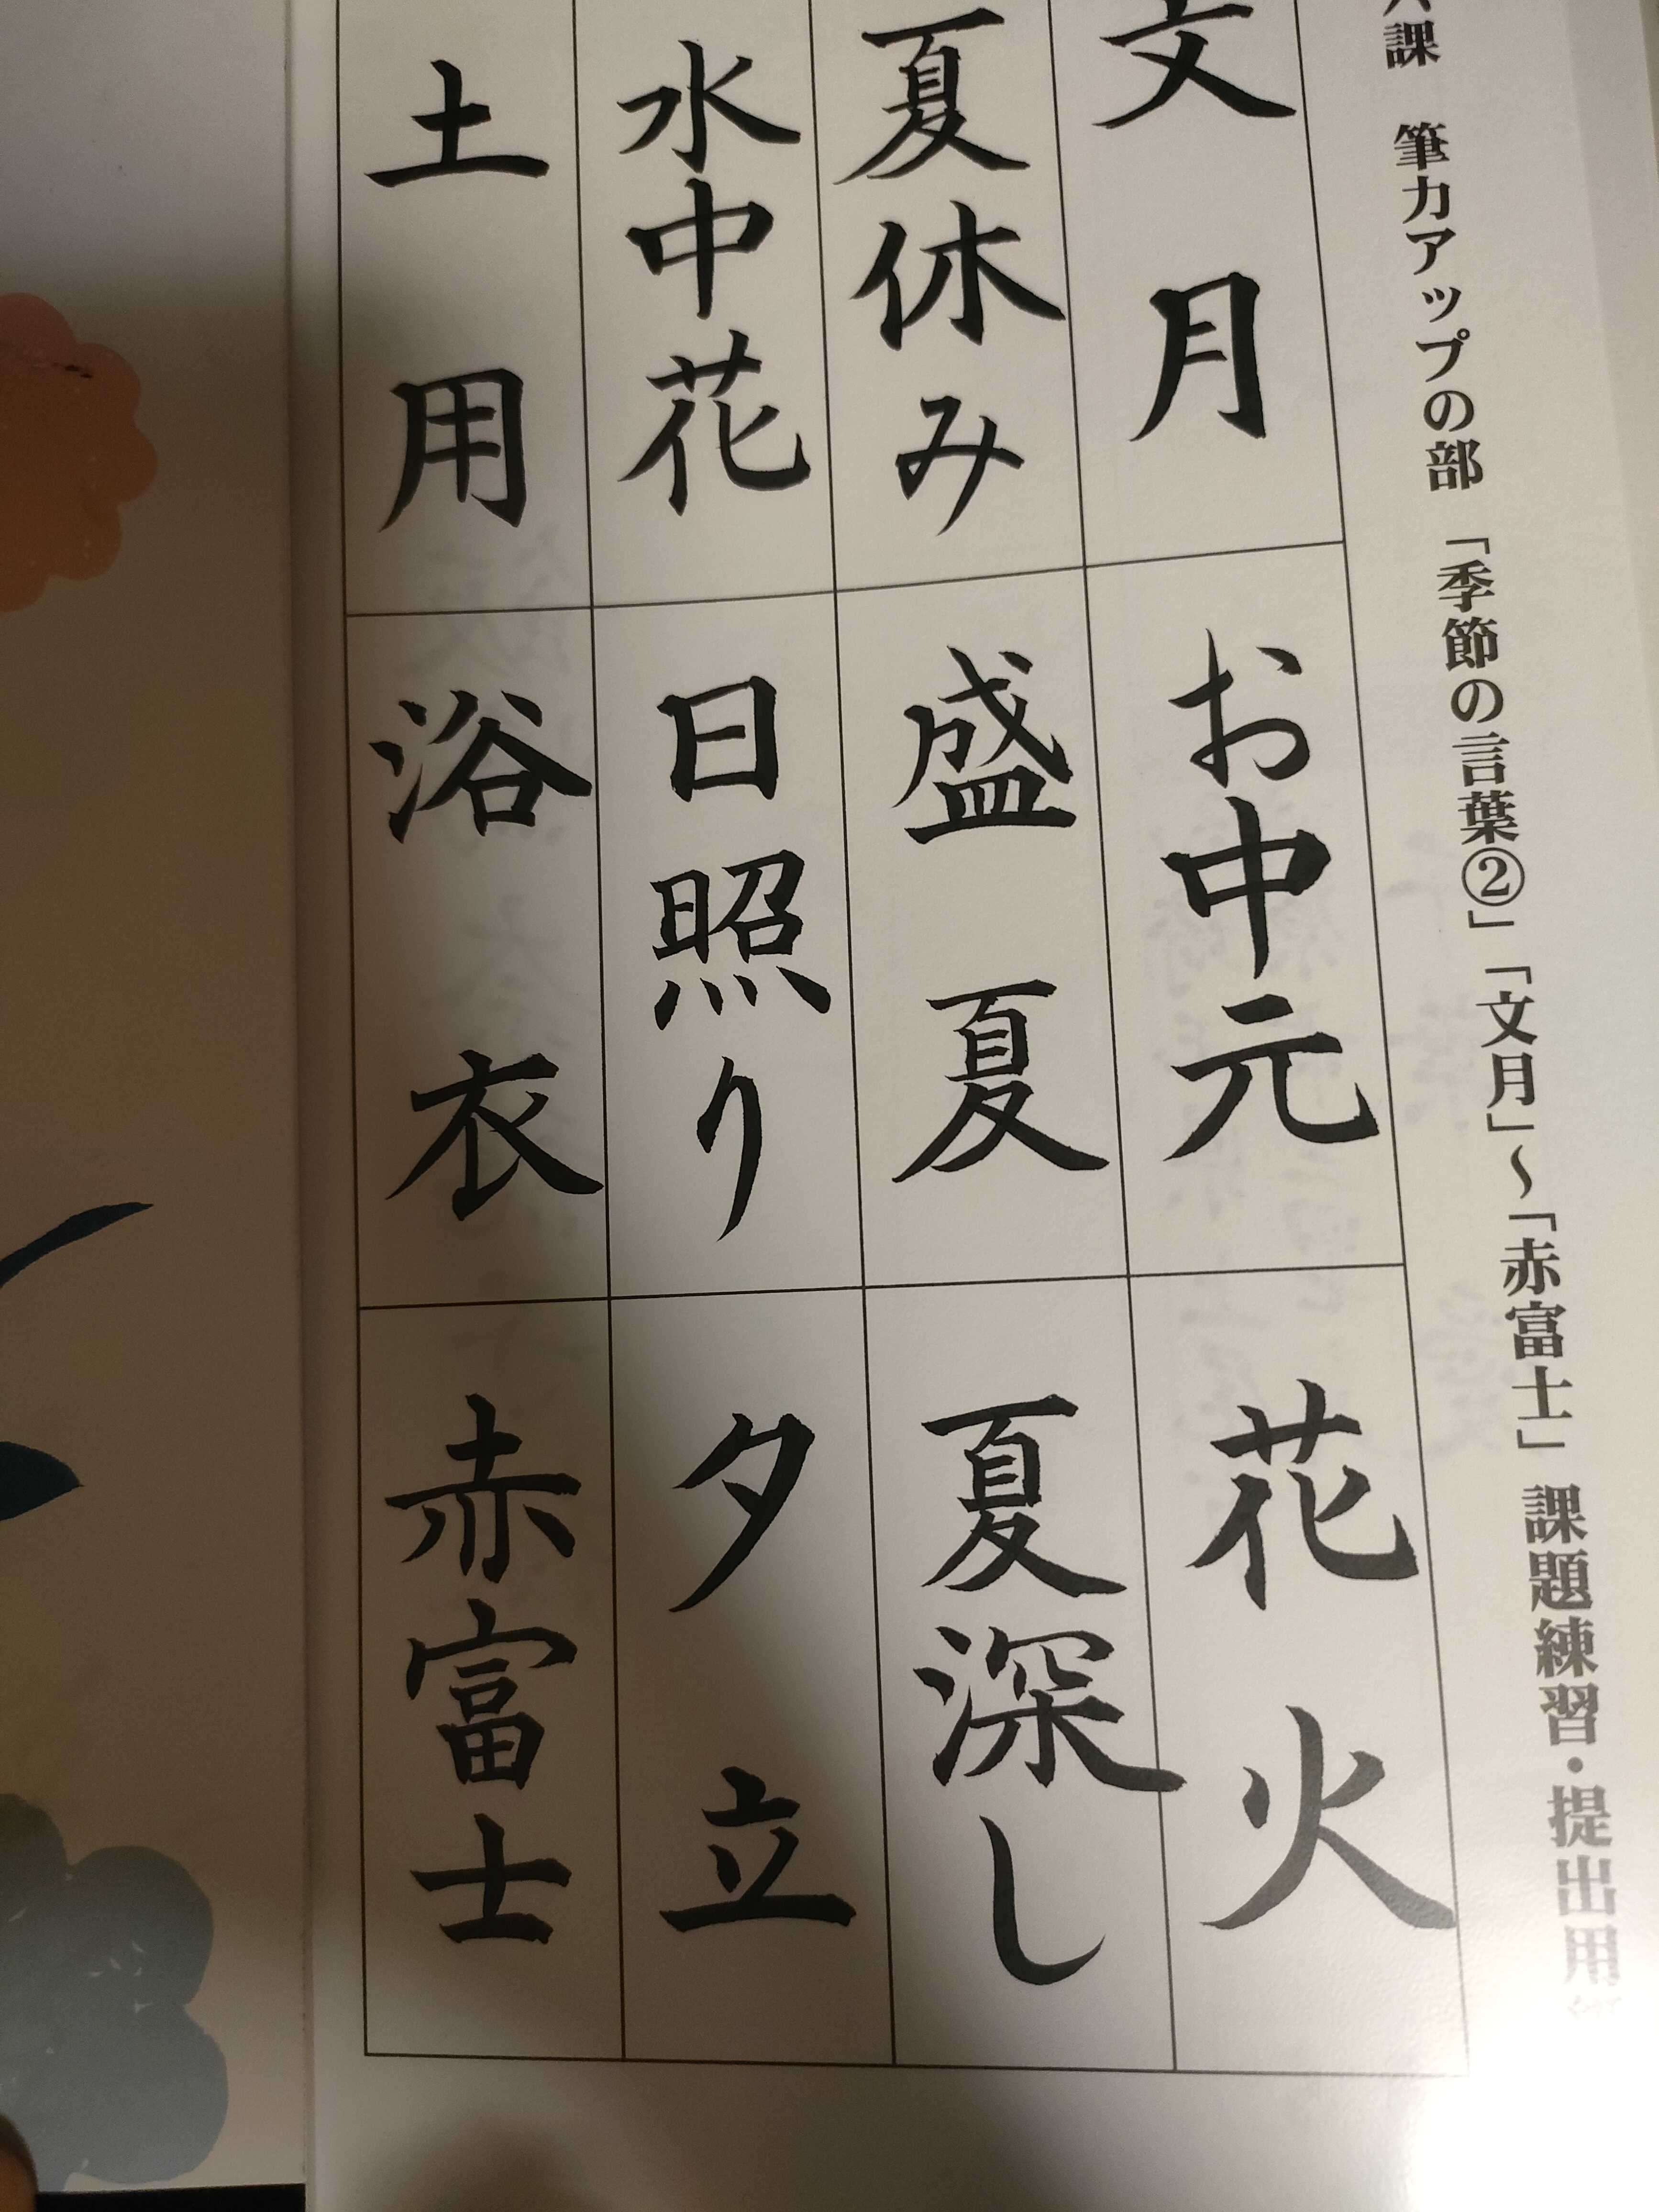 課 筆力アップの部 「季節の言葉②」「文月」~「赤富士」 課題練習・提出用
文月
お中元
花火
夏休み
盛夏
夏深し
水中花
日照り
夕立
土用
浴衣
赤富士